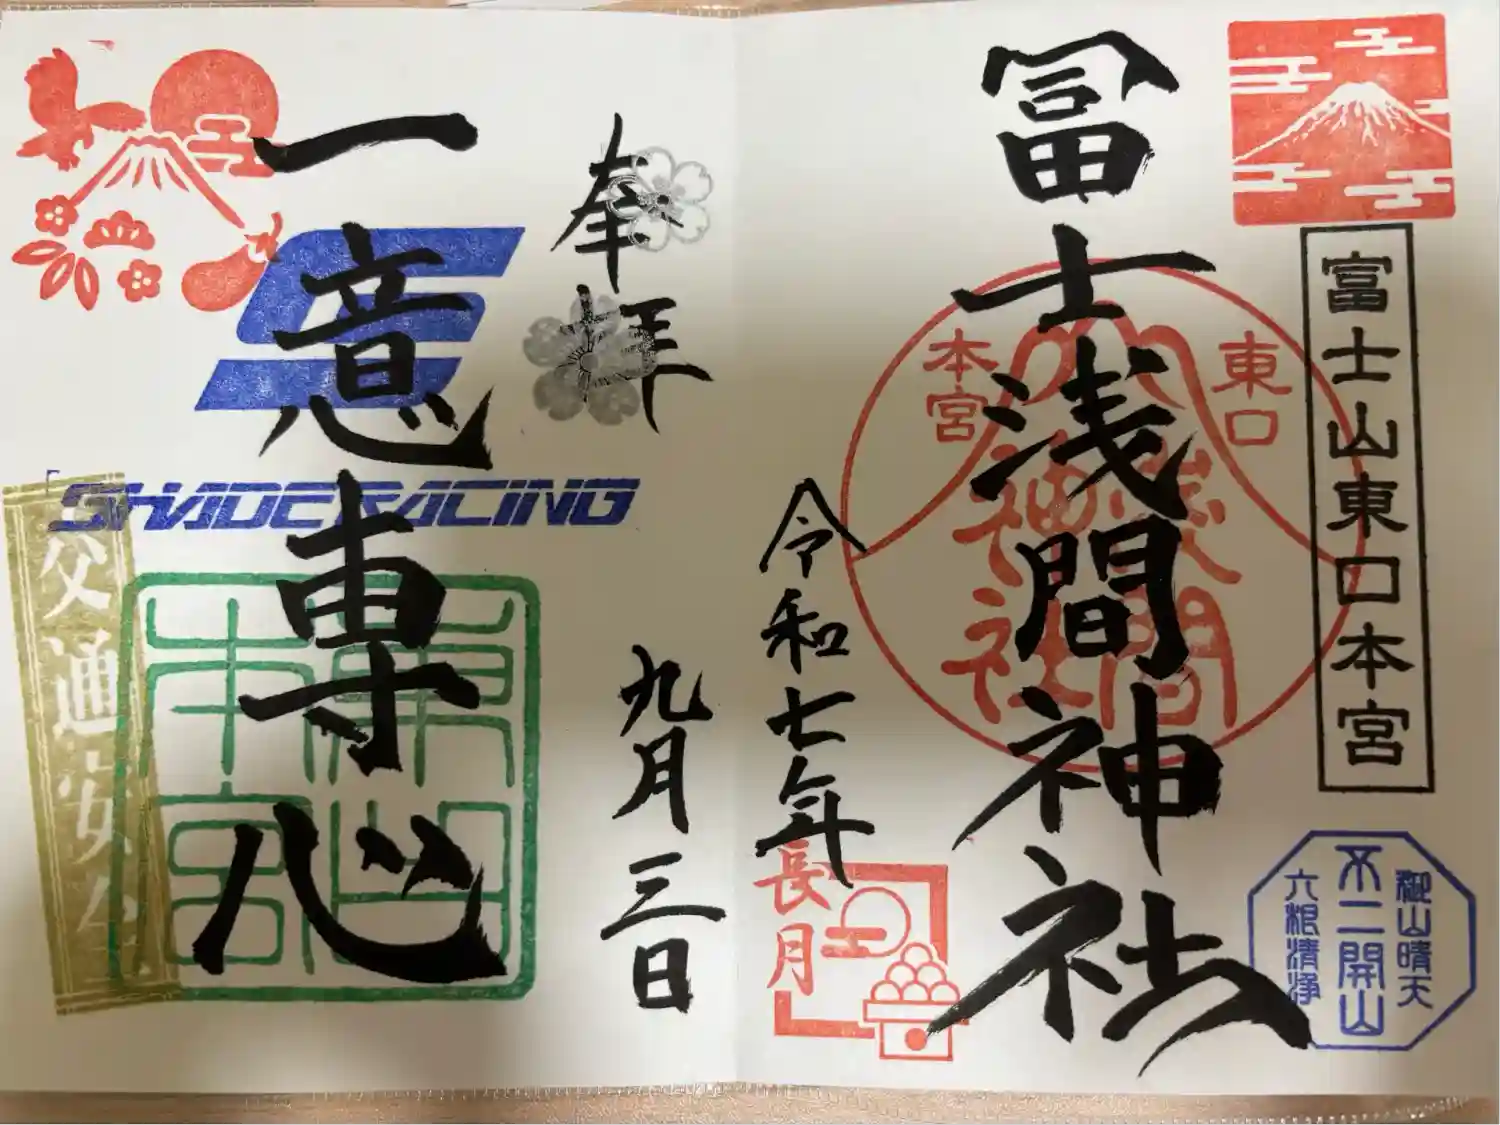 富士山東口本宮
冨士浅間神社
東口
本宮
浅間
神社
御山晴天
不二開山
六根清浄
令和七年
長月
九月三日
奉拝
一意専心
SHADERACING
交通安全
東口
本宮